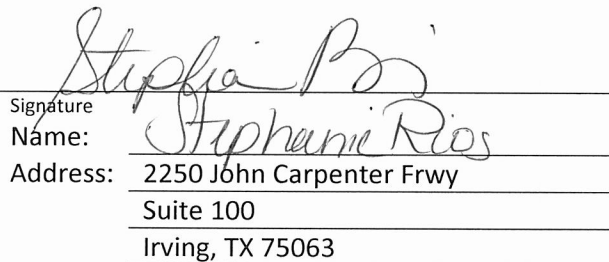 Stephanie Rios
Signature
Name: Stephanie Rios
Address: 2250 John Carpenter Frwy
Suite 100
Irving, TX 75063